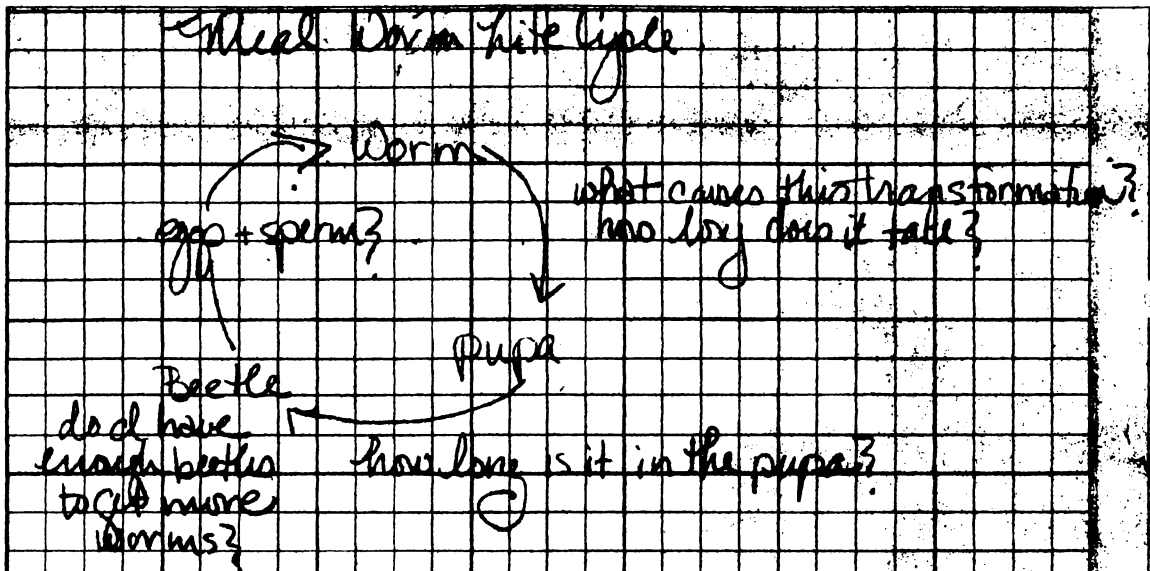 Meal Worm Life Cycle
Worm
what causes this transformation?
how long does it take?
egg + sperm?
pupa
Beetle
do I have
enough beetles
to get more
worms?
how long is it in the pupa?